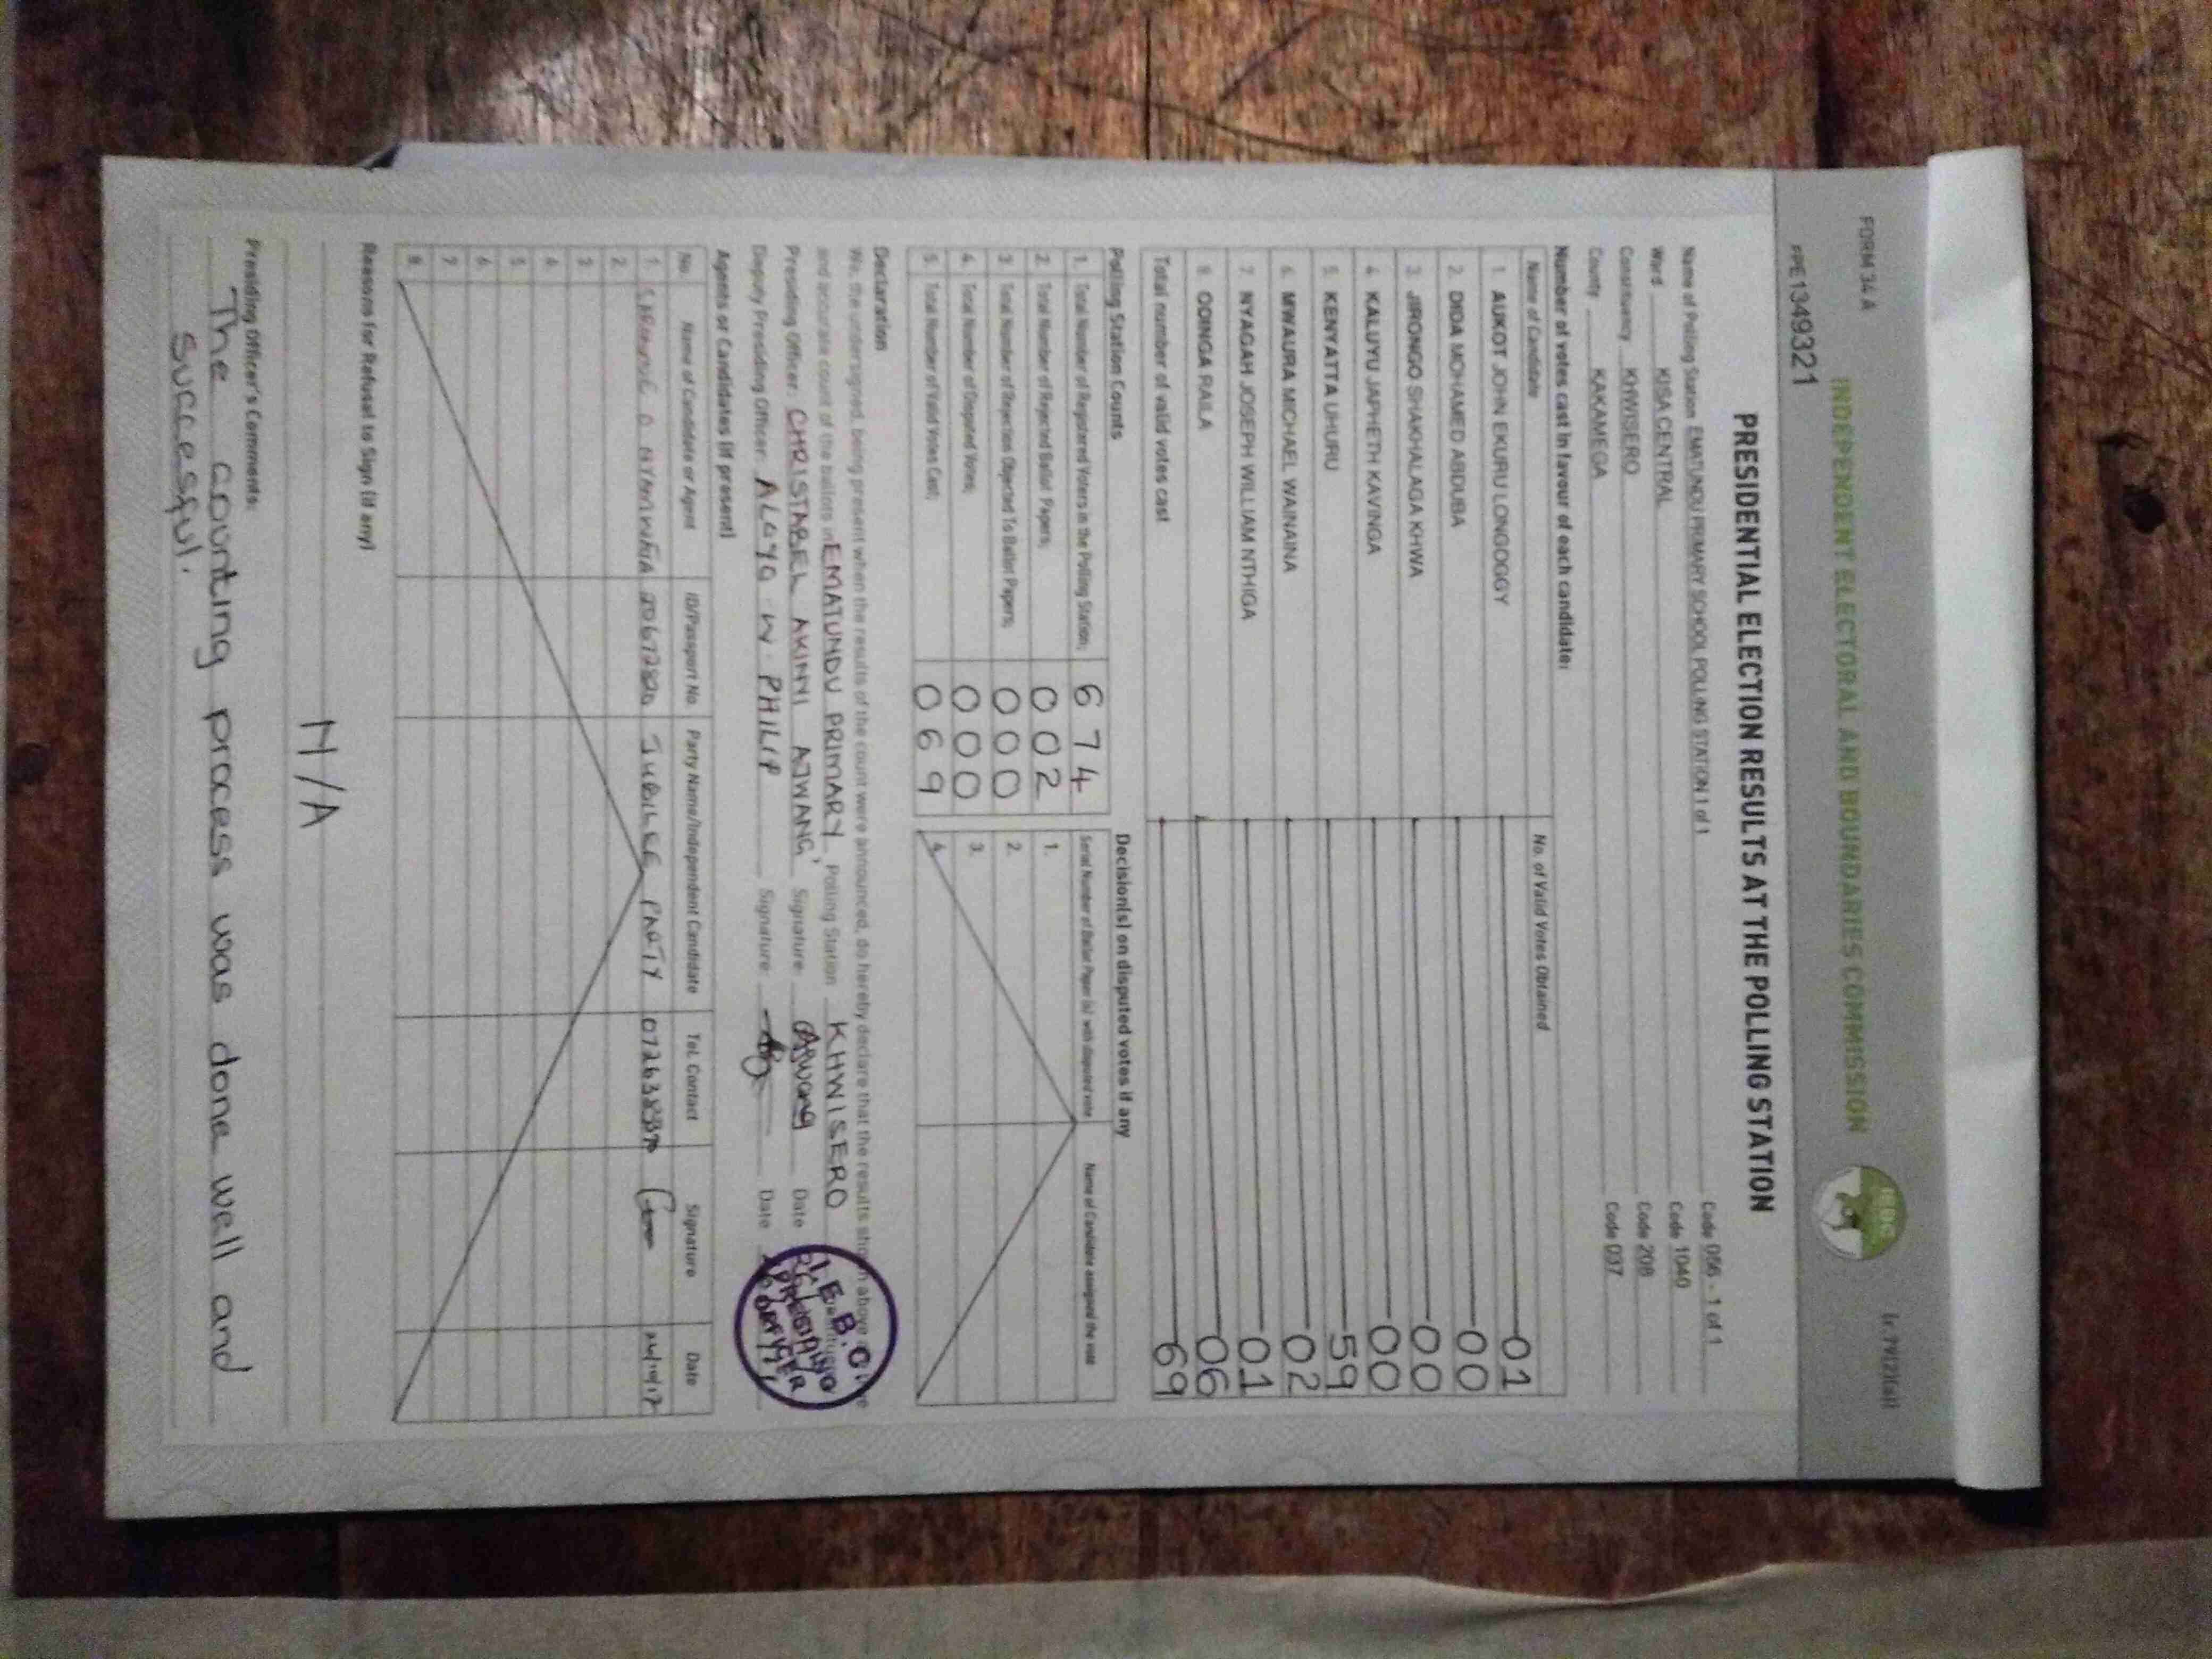 FORM 34 A
INDEPENDENT ELECTORAL AND BOUNDARIES COMMISSION
IEBC
PPE1349321
PRESIDENTIAL ELECTION RESULTS AT THE POLLING STATION
Name of Polling Station EMATUNDU PRIMARY SCHOOL POLLING STATION 1 of 1 Code 056 - 1 of 1
Ward KISA CENTRAL Code 1040
Constituency KHWISERO Code 208
County KAKAMEGA Code 037
Number of votes cast in favour of each candidate:
Name of Candidate No. of Valid Votes Obtained
1. AUKOT JOHN EKURU LONGOGGY 01
2. DIDA MOHAMED ABDUBA 00
3. JIRONGO SHAKHALAGA KHWA 00
4. KALUYU JAPHETH KAVINGA 00
5. KENYATTA UHURU 59
6. MWAURA MICHAEL WAINAINA 02
7. NYAGAH JOSEPH WILLIAM NTHIGA 01
8. ODINGA RAILA 06
Total number of valid votes cast 69
Polling Station Counts Decision(s) on disputed votes if any
1. Total Number of Registered Voters in the Polling Station; 674 Serial Number of Ballot Paper (s) with disputed vote Name of Candidate assigned the vote
2. Total Number of Rejected Ballot Papers; 002 1.
3. Total Number of Rejection Objected To Ballot Papers; 000 2.
4. Total Number of Disputed Votes; 000 3.
5. Total Number of Valid Votes Cast; 069 4.
Declaration
We, the undersigned, being present when the results of the count were announced, do hereby declare that the results shown above
and accurate count of the ballots in EMATUNDU PRIMARY Polling Station KHWISERO
Presiding Officer: CHRISTABEL AKINYI AJWANG' Signature Ajwang Date
Deputy Presiding Officer: ALOYO W. PHILIP Signature Date
I.E.B.C
PRESIDING
OFFICER
Agents or Candidates (if present)
No. Name of Candidate or Agent ID/Passport No. Party Name/Independent Candidate Tel. Contact Signature Date
1. JUBILEE PARTY
2.
3.
4.
5.
6.
7.
8.
Reasons for Refusal to Sign (if any)
N/A
Presiding Officer's Comments:
The counting process was done well and
successful.